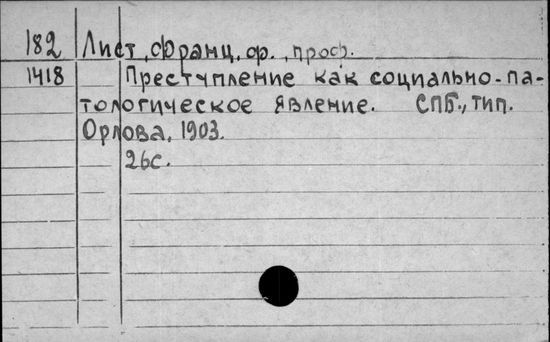 182 Лист, Франц, ф., проф.
1418 Преступление как социально-па-
тологическое явление. СПБ., тип.
Орлова, 1903.
26с.